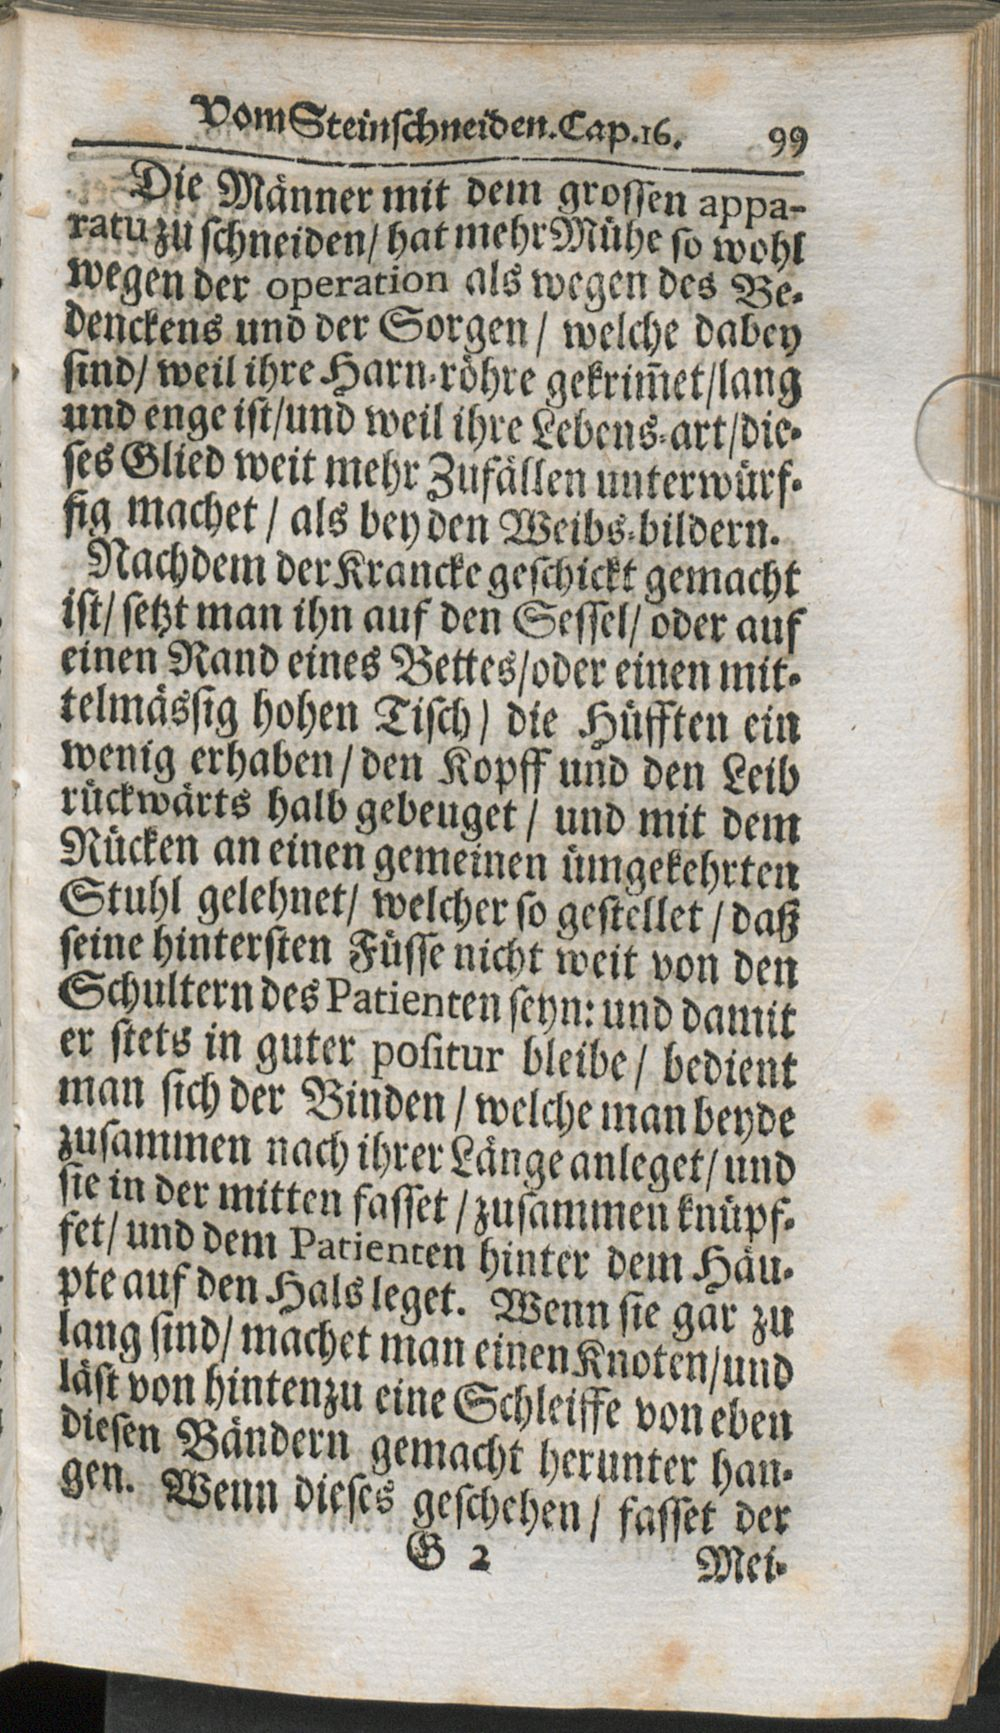 Vom Steinschneiden. Cap. 16. 99
Die Männer mit dem grossen appa-
ratu zu schneiden / hat mehr Mühe so wohl
wegen der operation als wegen des Be-
denckens und der Sorgen / welche dabey
sind / weil ihre Harn-röhre gekrim̃et / lang
und enge ist / und weil ihre Lebens-art / die-
ses Glied weit mehr Zufällen unterwürf-
fig machet / als bey den Weibs-bildern.
Nachdem der Krancke geschickt gemacht
ist / setzt man ihn auf den Sessel / oder auf
einen Rand eines Bettes / oder einen mit-
telmässig hohen Tisch / die Hüfften ein
wenig erhaben / den Kopff und den Leib
rückwärts halb gebeuget / und mit dem
Rücken an einen gemeinen ümgekehrten
Stuhl gelehnet / welcher so gestellet / daß
seine hintersten Füsse nicht weit von den
Schultern des Patienten seyn: und damit
er stets in guter positur bleibe / bedient
man sich der Binden / welche man beyde
zusammen nach ihrer Länge anleget / und
sie in der mitten fasset / zusammen knüpf-
fet / und dem Patienten hinter dem Häu-
pte auf den Hals leget. Wenn sie gar zu
lang sind / machet man einen Knoten / und
läst von hintenzu eine Schleiffe von eben
diesen Bändern gemacht herunter han-
gen. Wenn dieses geschehen / fasset der
G 2 Mei-